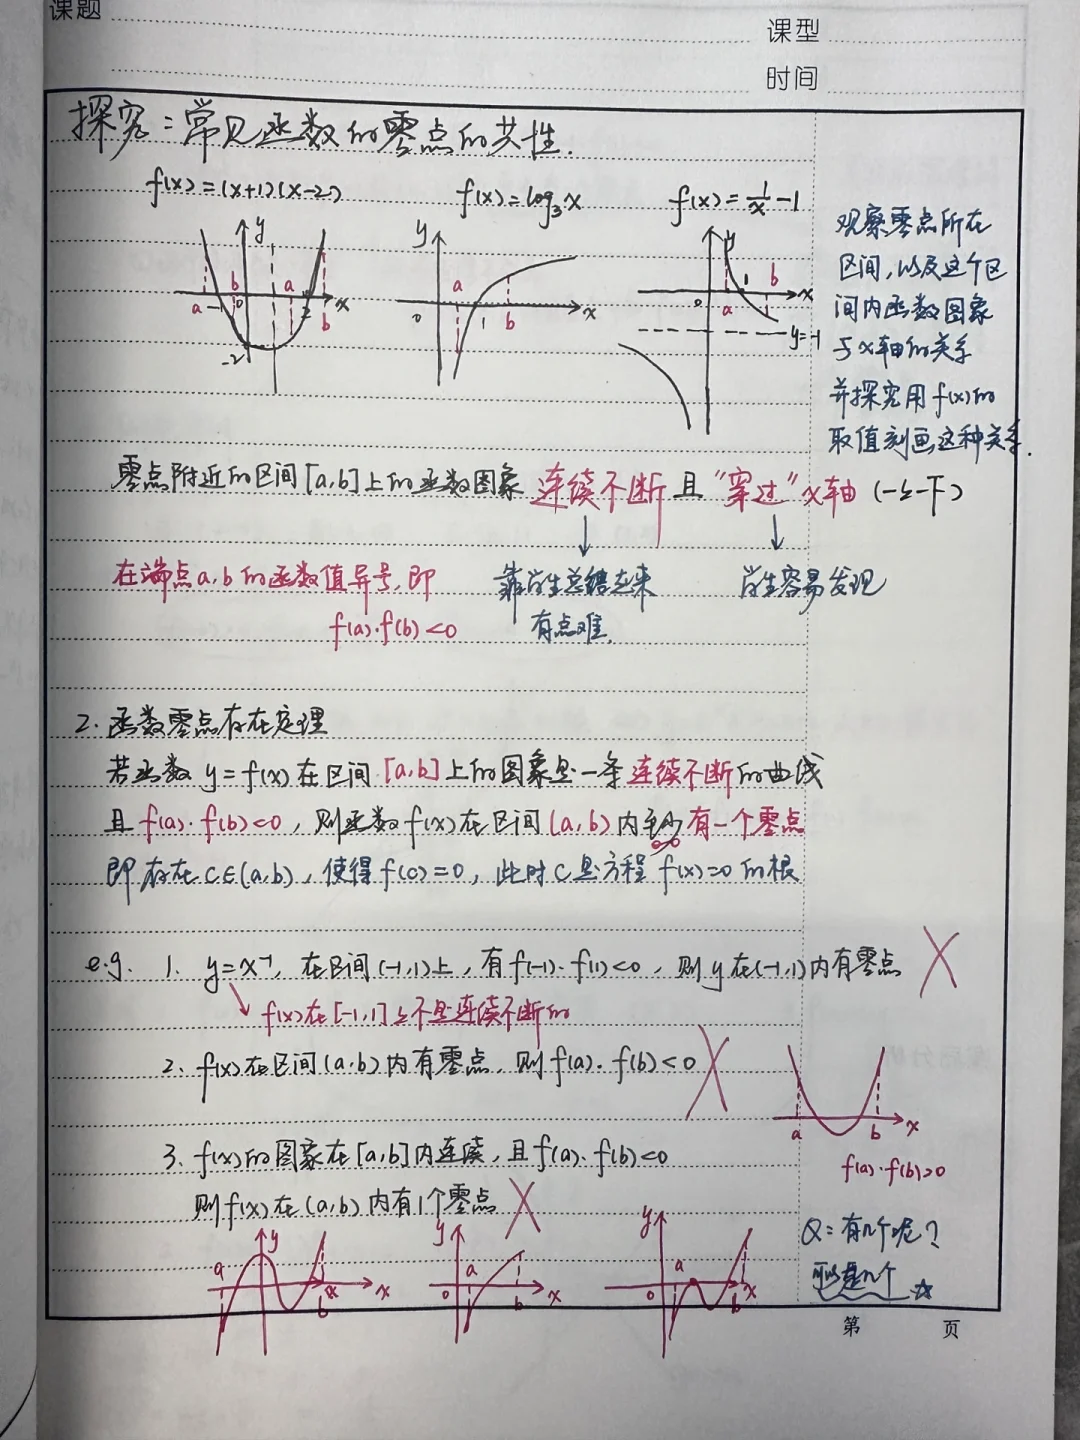 课题
课型
时间
探究：常见函数的零点的共性.
f(x)=(x+1)(x-2)
f(x)=log₃x
f(x)=1/x-1
y
b
a
a
-1
0
2
b
x
-2
y
a
0
1
b
x
y
1
b
0
a
x
y=-1
观察零点所在
区间,以及这个区
间内函数图象
与x轴的关系
并探究用f(x)的
取值刻画这种关系.
零点附近的区间[a,b]上的函数图象 连续不断 且 "穿过" x轴 (一上一下)
在端点a,b的函数值异号,即
靠学生总结出来
学生容易发现
f(a)·f(b)<0
有点难.
2. 函数零点存在定理
若函数 y=f(x) 在区间 [a,b] 上的图象是一条连续不断的曲线
且 f(a)·f(b)<0, 则函数f(x)在区间(a,b)内至少有一个零点
即存在c∈(a,b), 使得f(c)=0, 此时c是方程f(x)=0的根
e.g. 1. y=x⁻¹, 在区间(-1,1)上, 有f(-1)·f(1)<0, 则y在(-1,1)内有零点
f(x)在[-1,1]上不是连续不断的
2. f(x)在区间(a,b)内有零点, 则f(a)·f(b)<0
a
b
x
f(a)·f(b)>0
3. f(x)的图象在[a,b]内连续, 且f(a)·f(b)<0
则f(x)在(a,b)内有1个零点
Q: 有几个呢?
可以是几个 ☆
a
y
b
x
y
a
0
1
x
y
a
0
b
x
第 页